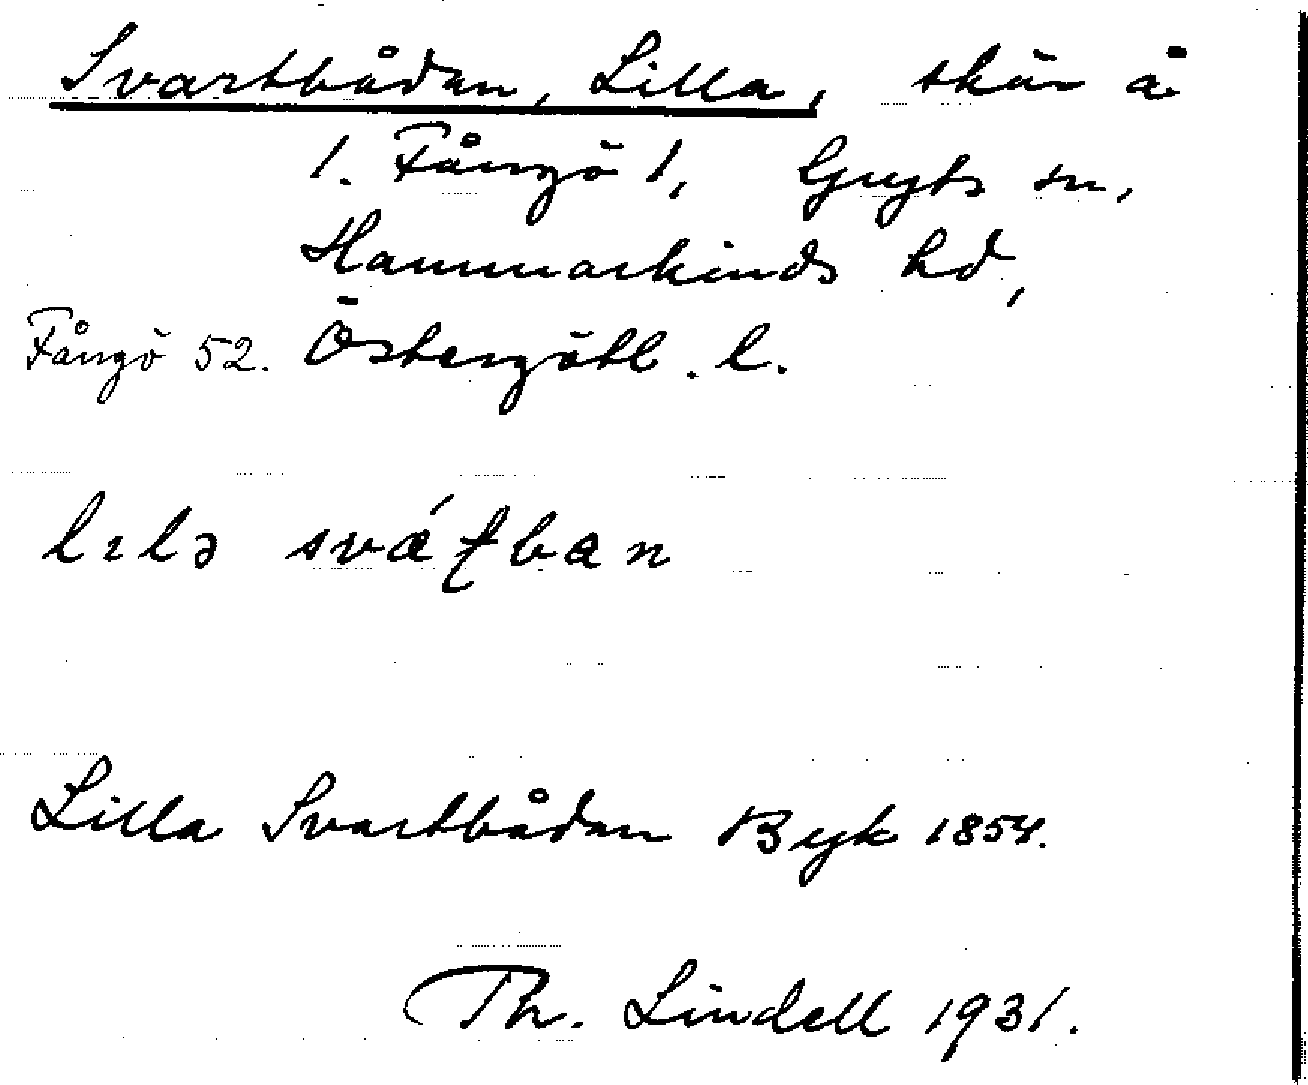 Svartbådan, Lilla, skär å
1. Fångö 1, Gryts sn,
Hammarkinds hd,
Fångö 52. Östergötl. l.
lɩlə
Lilla Svartbådan Byk 1854.
Th. Lindell 1931.